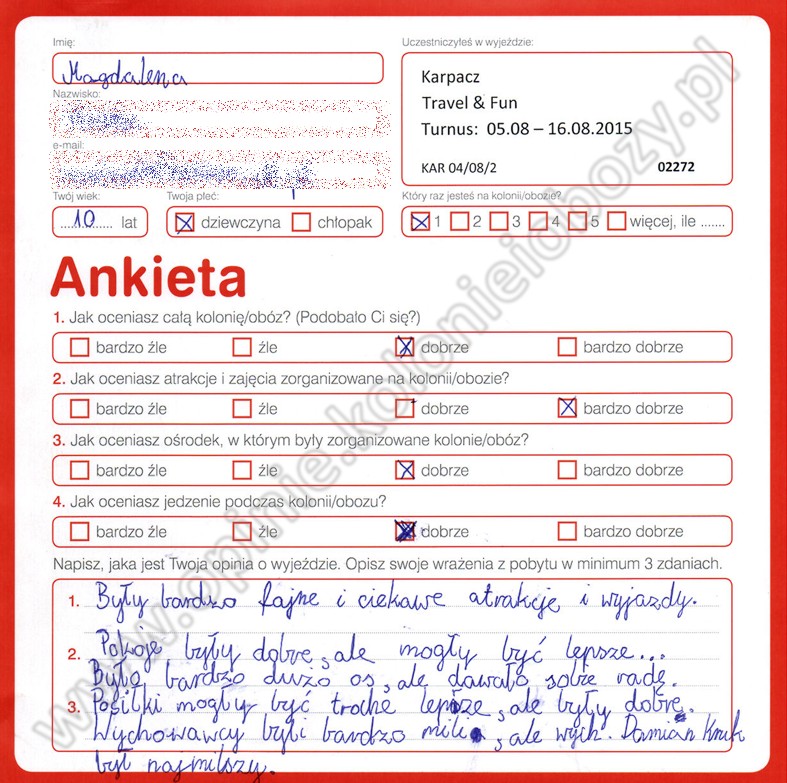 Imię:
Magdalena
Nazwisko:
e-mail:
Twój wiek:
10 lat
Twoja płeć:
dziewczyna chłopak
Uczestniczyłeś w wyjeździe:
Karpacz
Travel & Fun
Turnus: 05.08 – 16.08.2015
KAR 04/08/2 02272
Który raz jesteś na kolonii/obozie?
1 2 3 4 5 więcej, ile .......
Ankieta
1. Jak oceniasz całą kolonię/obóz? (Podobało Ci się?)
bardzo źle źle dobrze bardzo dobrze
2. Jak oceniasz atrakcje i zajęcia zorganizowane na kolonii/obozie?
bardzo źle źle dobrze bardzo dobrze
3. Jak oceniasz ośrodek, w którym były zorganizowane kolonie/obóz?
bardzo źle źle dobrze bardzo dobrze
4. Jak oceniasz jedzenie podczas kolonii/obozu?
bardzo źle źle dobrze bardzo dobrze
Napisz, jaka jest Twoja opinia o wyjeździe. Opisz swoje wrażenia z pobytu w minimum 3 zdaniach.
1. Były bardzo fajne i ciekawe atrakcje i wyjazdy.
2. Pokoje były dobre, ale mogły być lepsze...
Było bardzo dużo os, ale dawało sobie radę.
3. Posiłki mogły być troche lepsze, ale były dobre.
Wychowawcy byli bardzo mili, ale wych. Damian
był najmilszy.
www.opinie.kolonieiobozy.pl